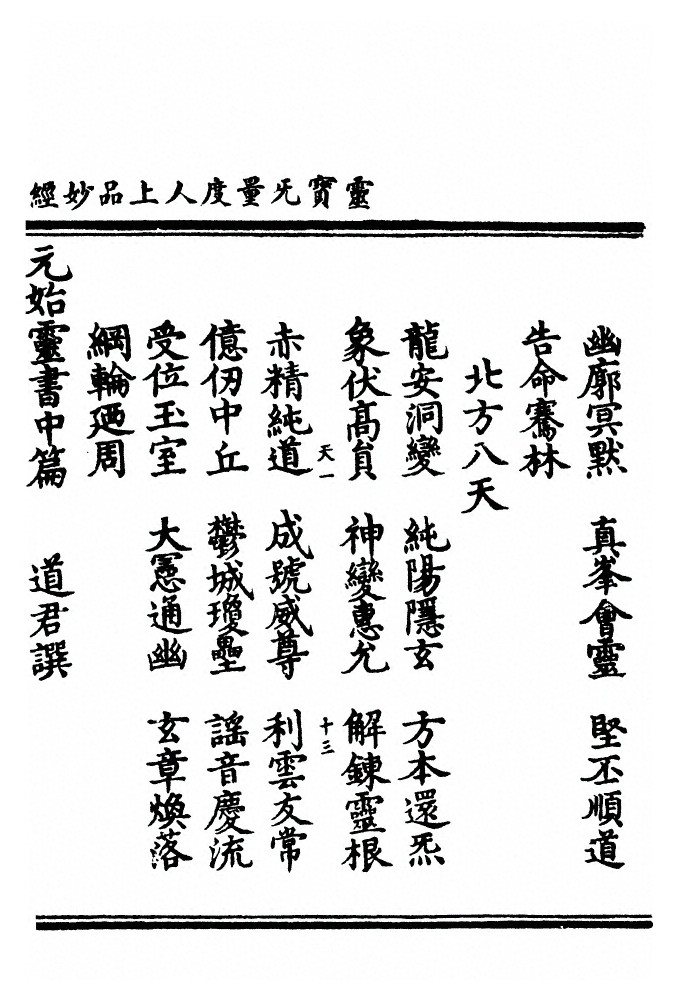 靈寳无量度人上品妙經
幽廓冥默　真峯會靈　堅丕順道
告命騫林
北方八天
龍安洞變　純陽隱玄　方本還炁
象伏髙貟　神變惠允　解鍊靈根
天一　十三
赤精純道　成號威尊　利雲友常
億仞中丘　鬱城瓊壘　謡音慶流
受位玉室　大憲通幽　玄章煥落
綱輪廼周
元始靈書中篇　道君譔